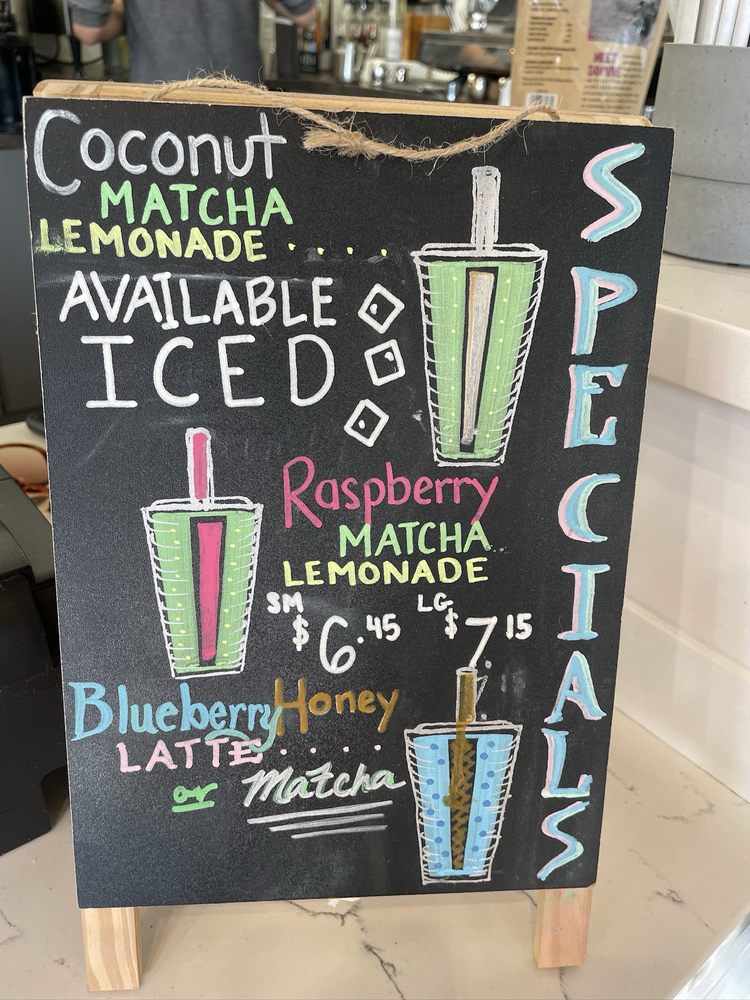 Coconut
MATCHA
LEMONADE . . . .
AVAILABLE
ICED
Raspberry
MATCHA
LEMONADE
SM $6.45 LG $7.15
Blueberry Honey
LATTE . . . .
or Matcha
SPECIALS